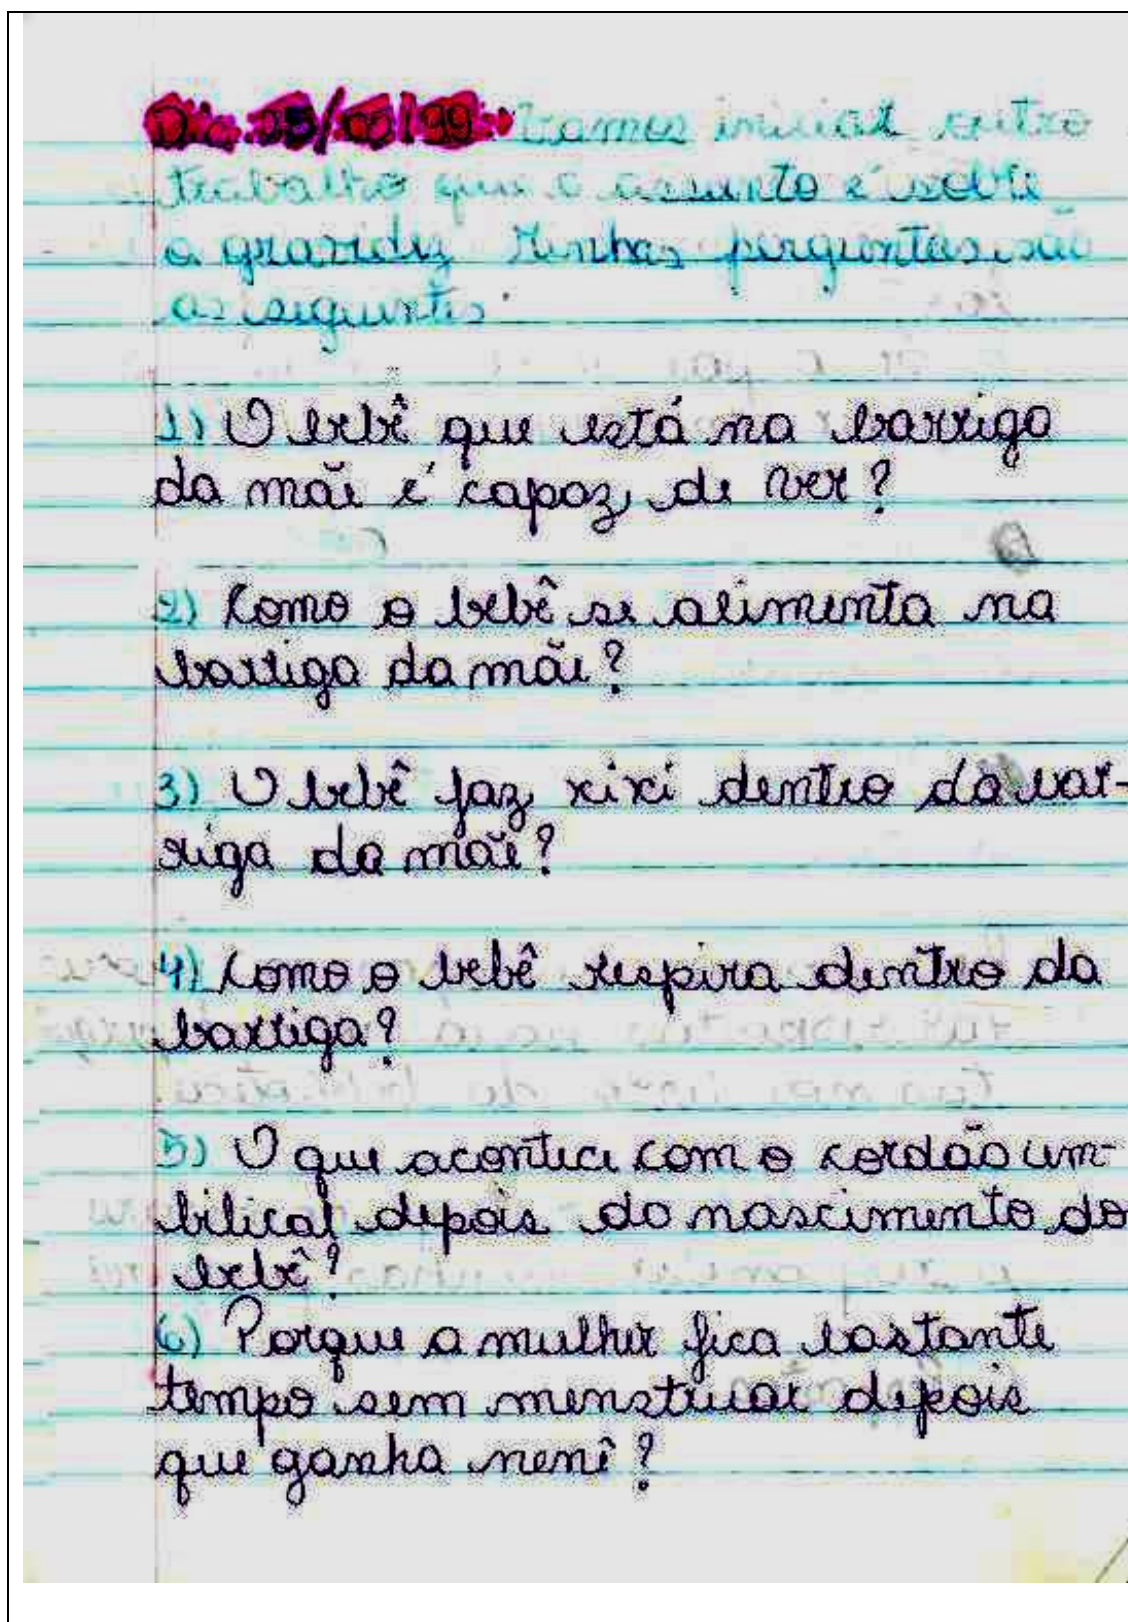 Vamos iniciar outro
trabalho que o assunto é sobre
a gravidez Minhas perguntas são
as seguintes:
1) O bebê que está na barriga
da mãe é capaz de ver?
2) Como o bebê se alimenta na
barriga da mãe?
3) O bebê faz xixi dentro da bar-
riga da mãe?
4) Como o bebê respira dentro da
barriga?
5) O que acontece com o cordão um-
bilical depois do nascimento do
bebê?
6) Porque a mulher fica bastante
tempo sem menstruar depois
que ganha nenê?